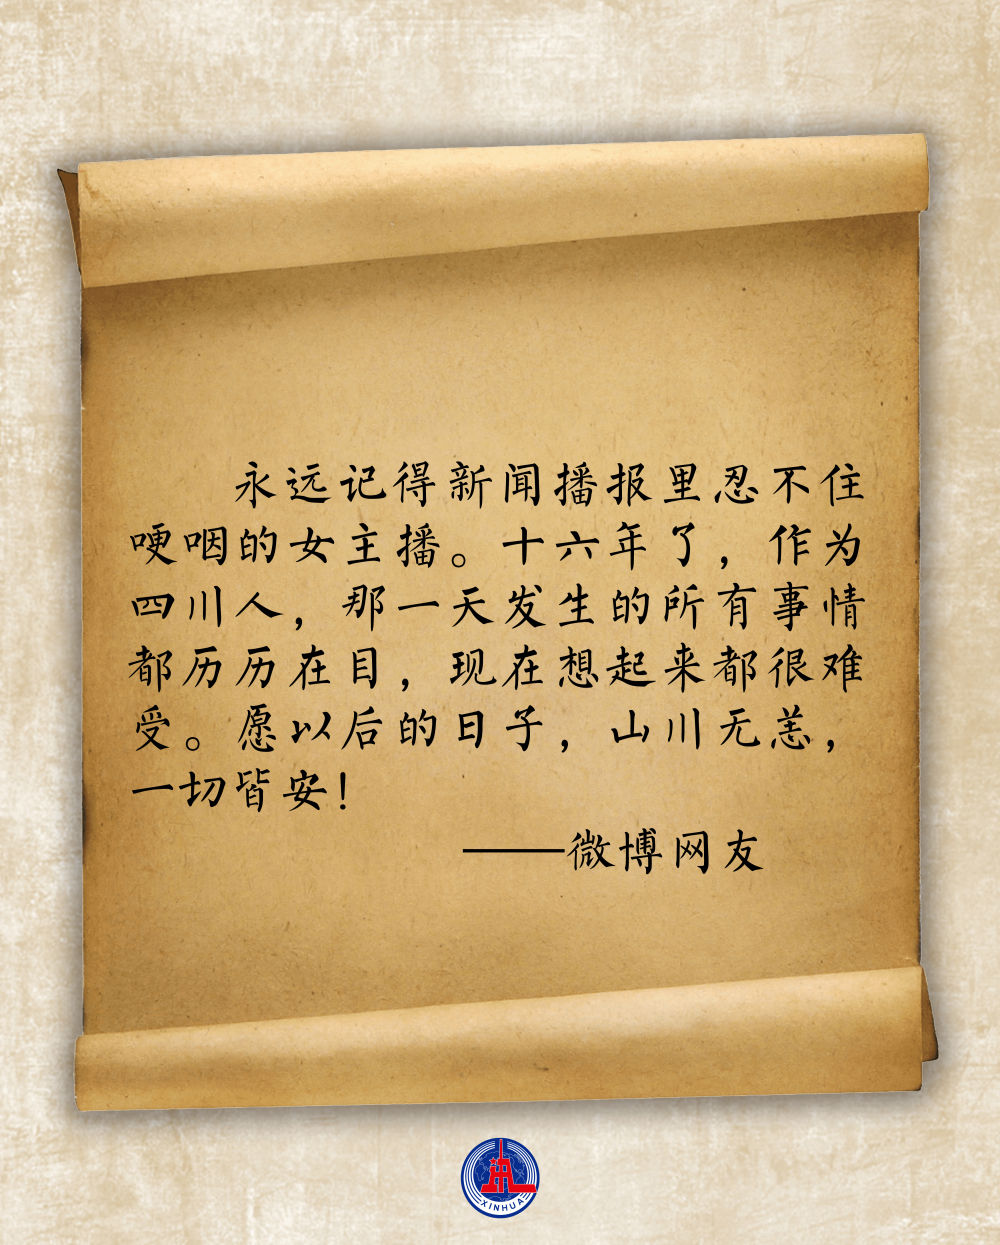 永远记得新闻播报里忍不住
哽咽的女主播。十六年了，作为
四川人，那一天发生的所有事情
都历历在目，现在想起来都很难
受。愿以后的日子，山川无恙，
一切皆安！
——微博网友
XINHUA